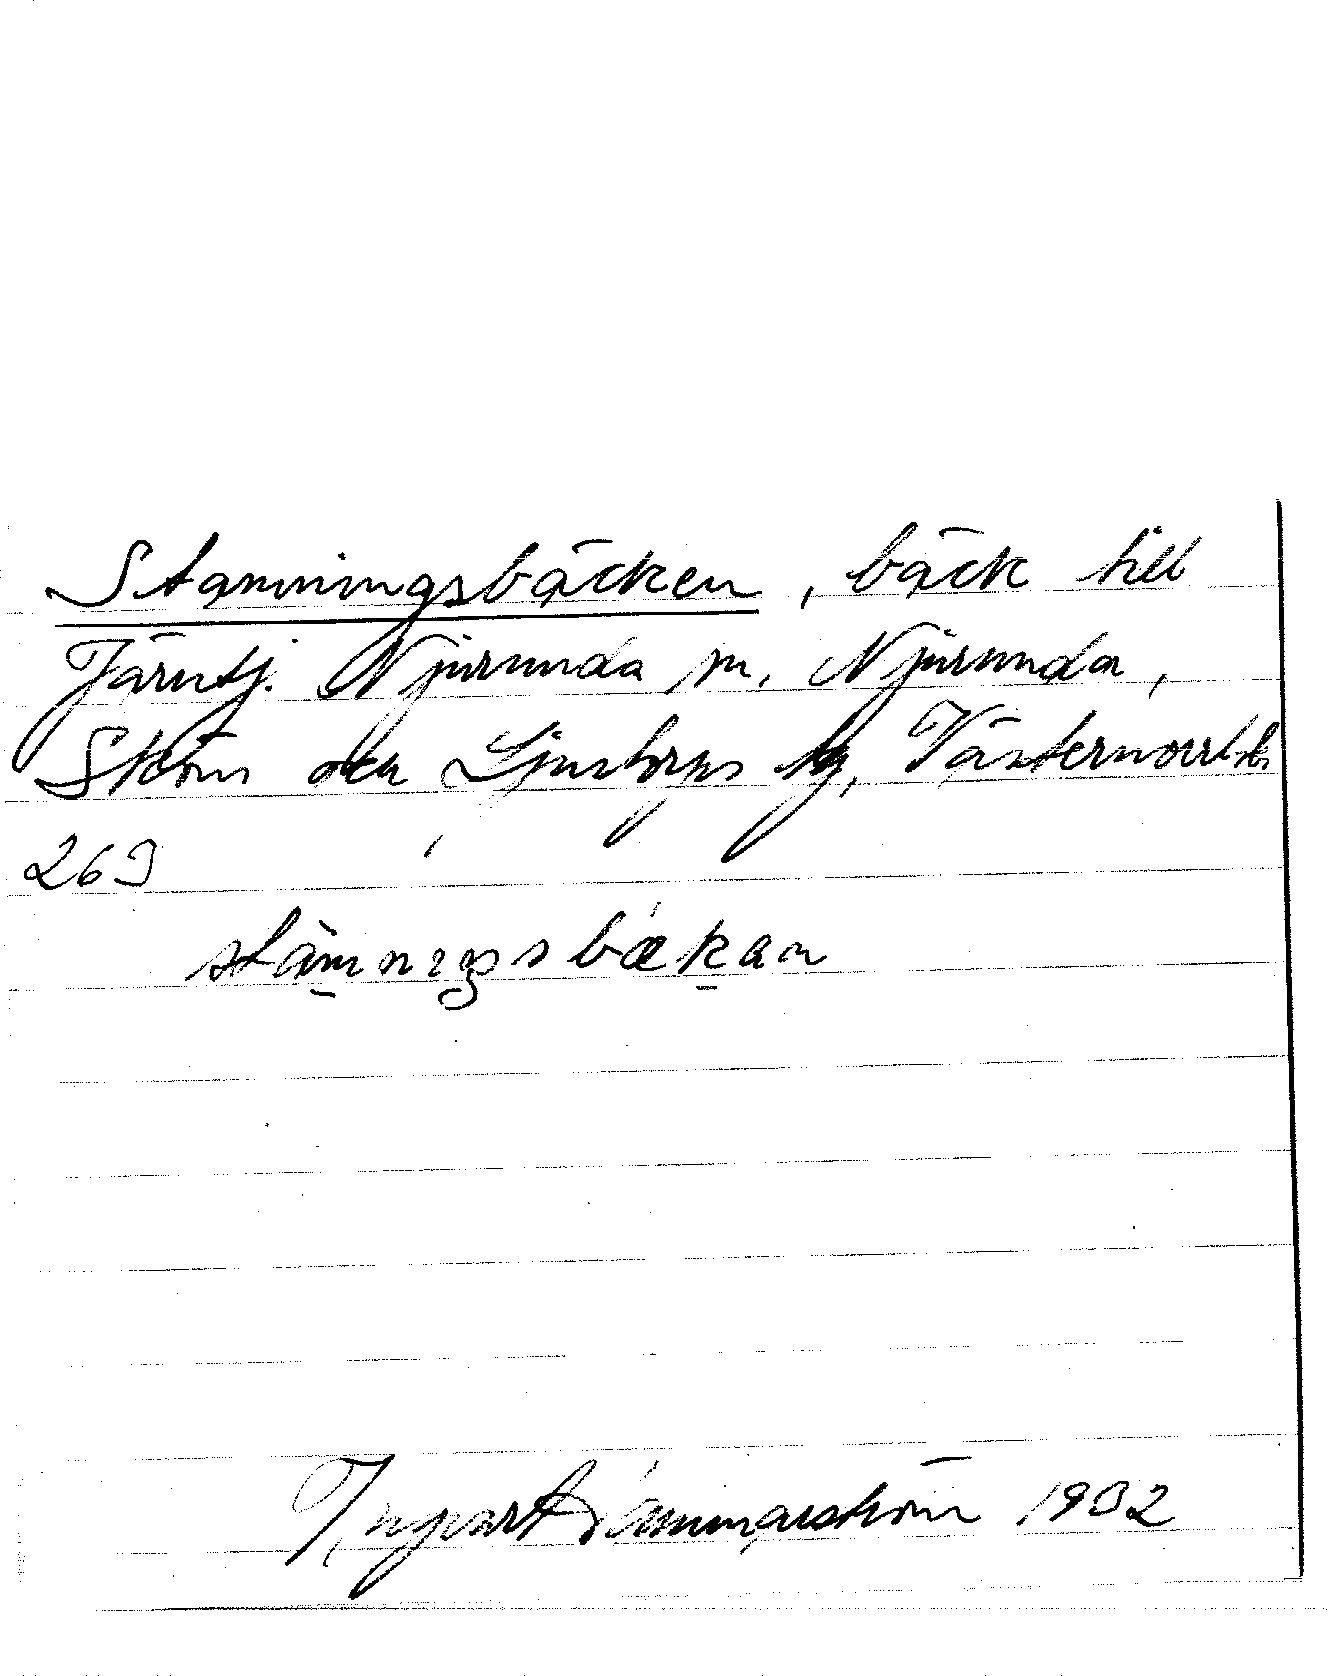 Stamningsbäcken, bäck till
Järntj. Njurunda sn. Njurunda,
Sköns och Ljustorps tg, Västernorrl
263
stàmnıŋsbækan
Ingvart Hammarström 1932